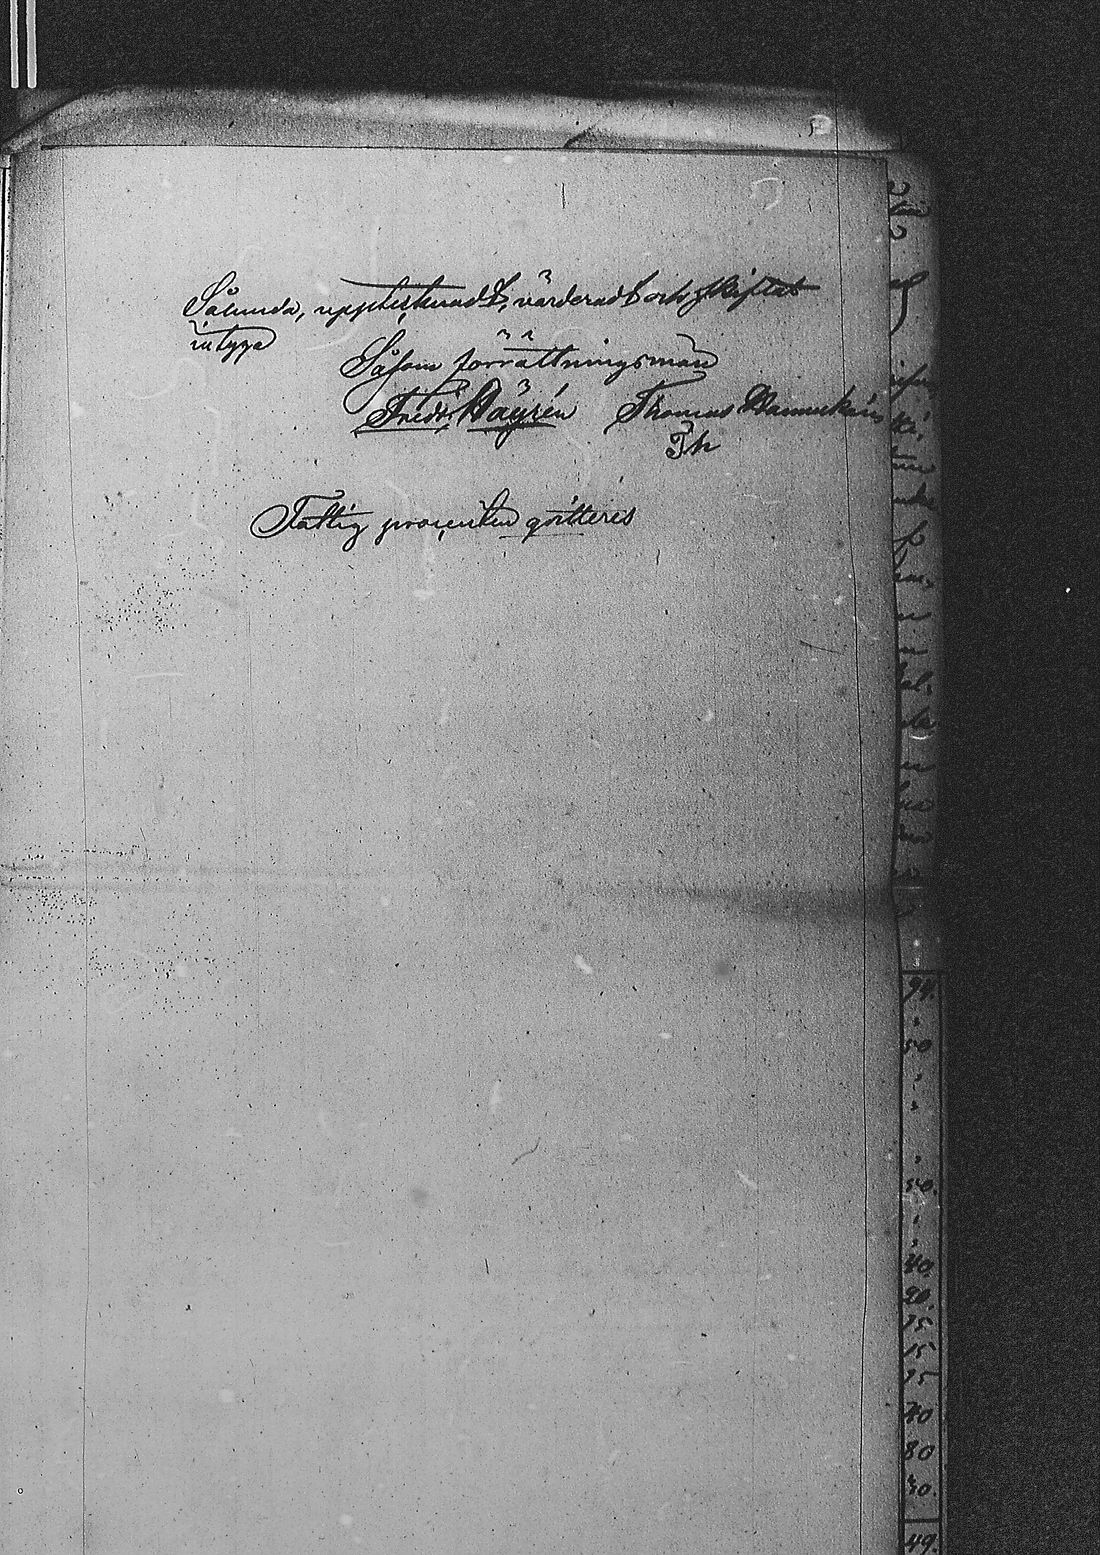 Sålunda, upptecknadt, värderadt och skiftat
intyga
Såsom förrättningsmän
Fredr. Häyrén Thomas Hannukain
Th
Fattig procenten qvitteris
94.
50
50.
40
20.
75.
15
25
40
80
30.
49.